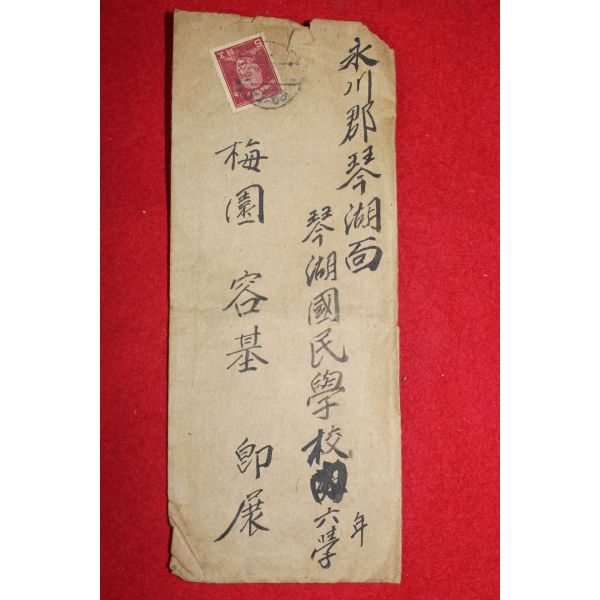 永川郡琴湖面
琴湖國民學校內六學年
梅園 容基 即展